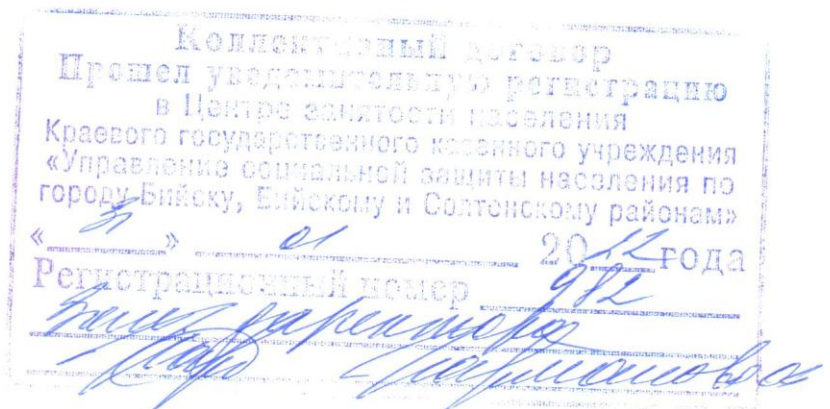 Коллективный договор
Прошел уведомительную регистрацию
в Центре занятости населения
Краевого государственного казенного учреждения
«Управление социальной защиты населения по
городу Бийску, Бийскому и Солтонскому районам»
« » 01 2022 года
Регистрационный номер 982
Зам. директора